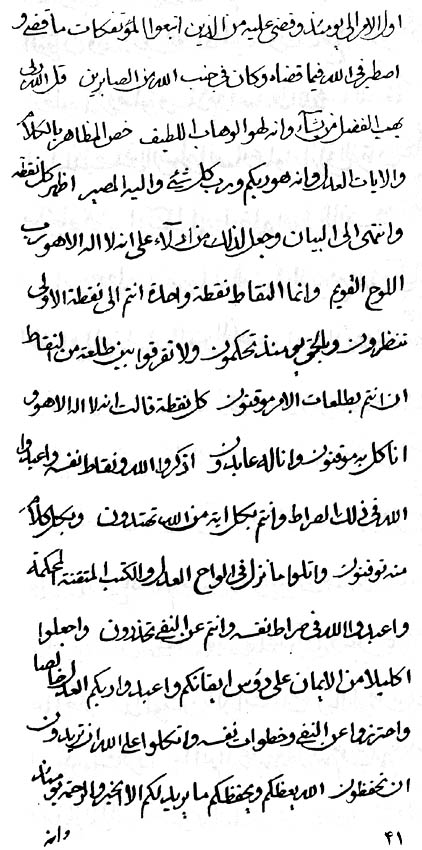 اول الامر الی یومئذ وقضی علیه من الذین اتبعوا المؤتفکات ما قضی و
اصطبر فی الله فیما قضاه وکان فی جنب الله من الصابرین قل الله
یهب الفضل من یشآء وانه لهو الوهاب اللطیف خص المظاهر بالکلام
والایات العدل وانه هو ربکم ورب کل شئ والیه المصیر اظهر کل نقطة
وانتهی الی البیان وجعل لذلک من علی انه لا اله الا هو رب
اللوح القویم وانما النقاط نقطة واحدة انتم الی نقطة الاولی
تنظرون وبالحق یومئذ تحکمون ولا تفرقوا بین طلعة من النقاط
ان انتم بطلعات الامر موقنون کل نقطة قالت انه لا اله الا هو
انا کل به موقنون وانا له عابدون اذکروا الله ونقاط نفسه واعبدوا
الله فی ذلک الصراط وانتم بکل ایة من الله تهتدون وبکل کلام
منه توقنون واتلوا ما نزل فی الواح العدل والکتب المتقنة المحکمة
واعبدوا الله فی صراط نفسه وانتم عن النفی تحذرون واجعلوا
اکلیلا من الایمان علی رؤس ایقانکم واعبدوا ربکم العدل خالصا
واحترزوا عن النفی وخطوات نفسه واتکلوا علی الله ان تریدون
ان تحفظون الله یعظکم ویحفظکم ما یرید لکم الا الخیر والرحمة یومئذ
۴۱ وانه